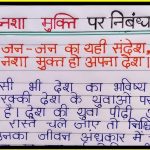 नशा मुक्ति पर निबंध
जन-जन का यही संदेश,
नशा मुक्त हो अपना देश।
किसी भी देश का भविष्य
तरक्की देश के युवाओं पर
है। देश की युवा पीढ़ी
रास्ते चले जाए तो निश्चि
उनका जीवन अंधकार में